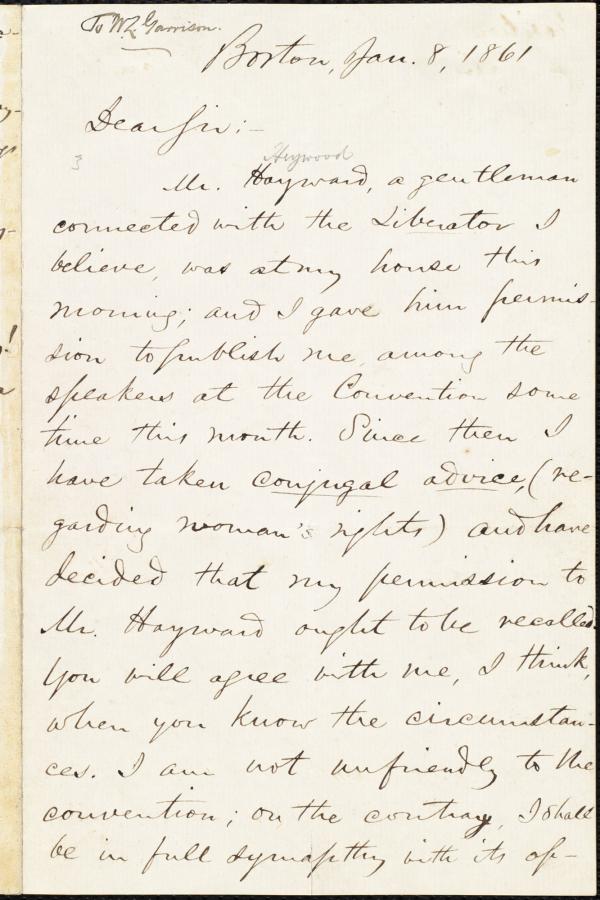 To W. L. Garrison.
Boston, Jan. 8, 1861
Dear Sir:—
3 Heywood
Mr. Hayward, a gentleman
connected with the Liberator I
believe, was at my house this
morning; and I gave him permis-
sion to publish me among the
speakers at the Convention some
time this month. Since then I
have taken conjugal advice, (re-
garding woman's rights) and have
decided that my permission to
Mr. Hayward ought to be recalled.
You will agree with me, I think,
when you know the circumstan-
ces. I am not unfriendly to the
convention; on the contray, I shall
be in full symapthy with its op-